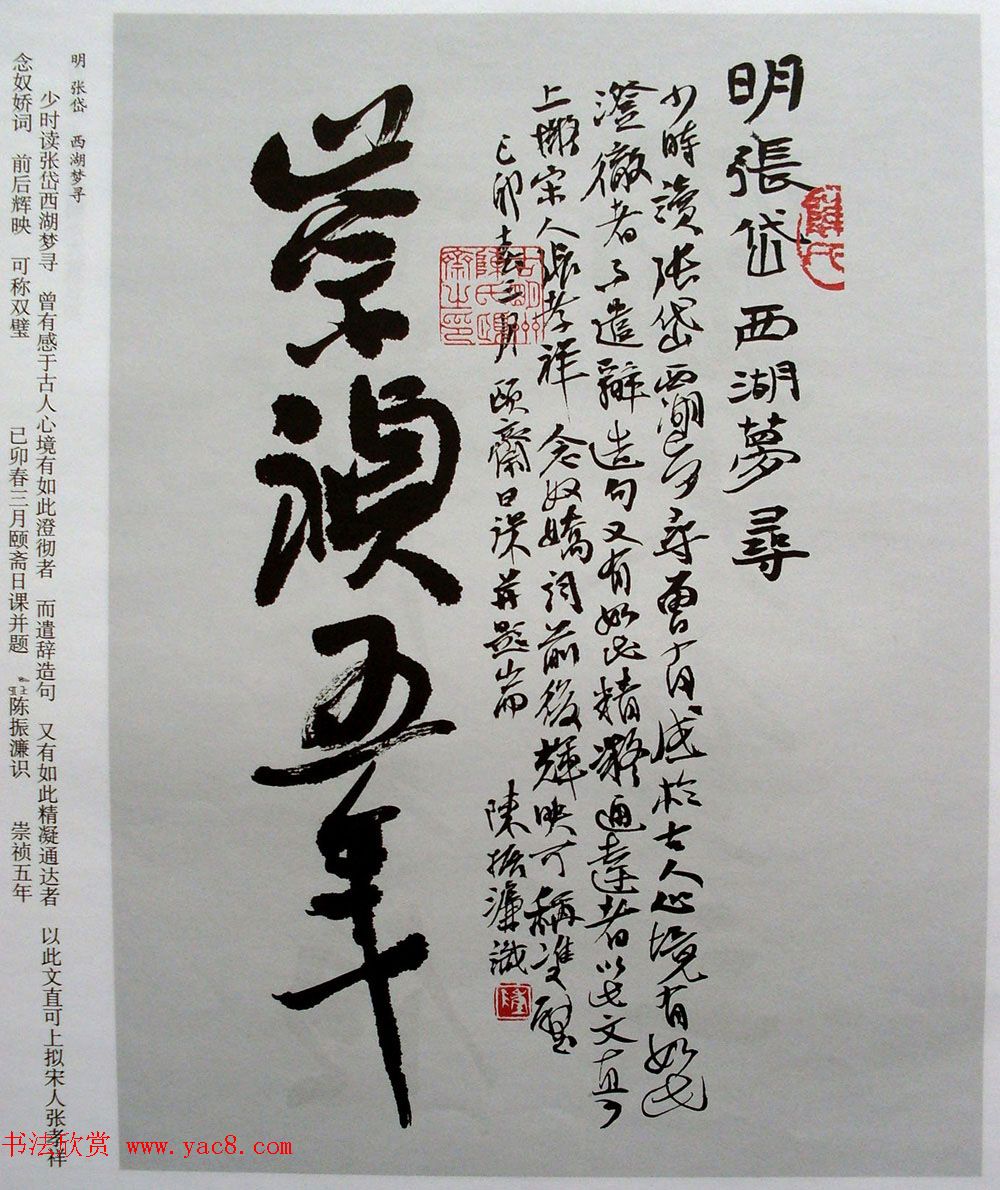 明張岱西湖夢尋
少時讀張岱西湖夢尋曾有感於古人心境有如此
澄徹者而遣辭造句又有如此精凝通達者以此文直可
上擬宋人張孝祥 念奴嬌詞前後輝映可稱雙璧
己卯春三月 頤齋日課并題耑 陳振濂識
崇禎五年
明 张岱 西湖梦寻
少时读张岱西湖梦寻 曾有感于古人心境有如此澄彻者 而遣辞造句 又有如此精凝通达者 以此文直可上拟宋人张孝祥
念奴娇词 前后辉映 可称双璧 己卯春三月颐斋日课并题 陈振濂识 崇祯五年
书法欣赏 www.yac8.com